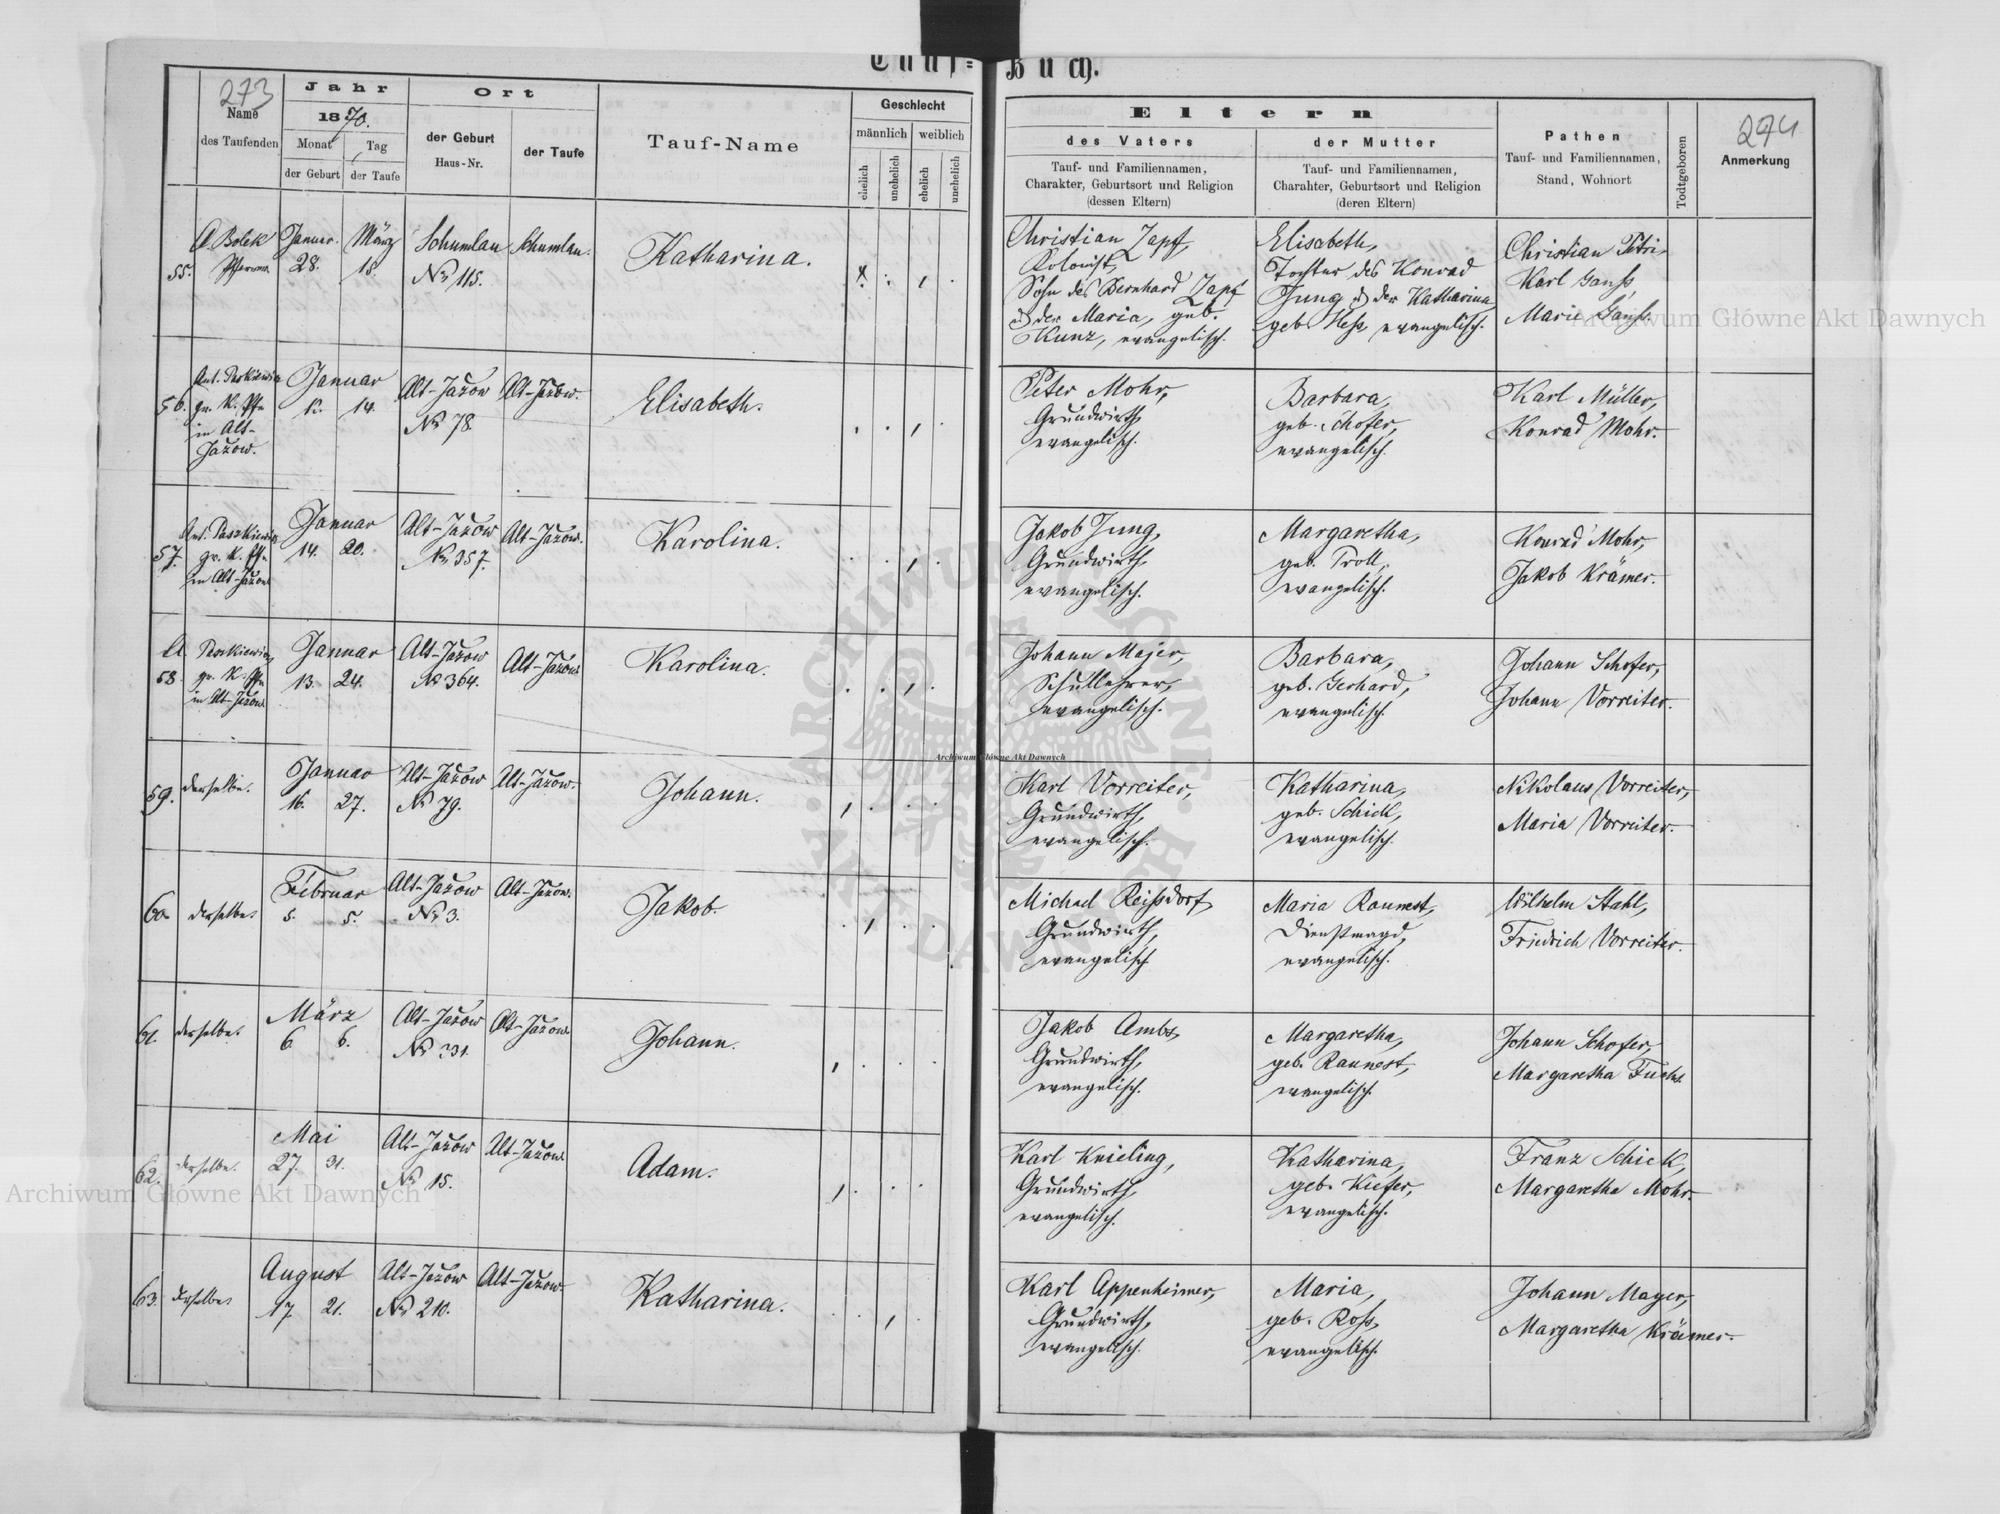 Tauf=
Buch.
273
Name
des Taufenden
Jahr
1870.
Monat
Tag
der Geburt
der Taufe
Ort
der Geburt
Haus-Nr.
der Taufe
Tauf-Name
Geschlecht
männlich
weiblich
ehelich
unehelich
ehelich
unehelich
Eltern
des Vaters
Tauf- und Familiennamen,
Charakter, Geburtsort und Religion
(dessen Eltern)
der Mutter
Tauf- und Familiennamen,
Charakter, Geburtsort und Religion
(deren Eltern)
Pathen
Tauf- und Familiennamen,
Stand, Wohnort
Todtgeboren
274
Anmerkung
55.
A Bolek
Pfarrer
Januar.
28.
März
18.
Schumlau
No 115.
Schumlau.
Katharina.
Christian Zapf,
Kolonist,
Sohn des Bernhard Zapf
u. der Maria, geb.
Kunz, evangelisch.
Elisabeth,
Tochter des Konrad
Jung u. der Katharina
geb. Heß, evangelisch.
Christian Petri,
Karl Ganß
Marie Ganß.
56.
gr. K. Pfr
in Alt-
Jazow.
Januar
14.
Alt-Jazow
No 78.
Alt-Jazow.
Elisabeth.
Peter Mohr,
Grundwirth,
evangelisch.
Barbara,
geb. Schofer,
evangelisch.
Karl Müller,
Konrad Mohr.
57.
Ant. Paszkiewicz
gr. K. Pfr
in Alt-Jazow
Januar
14. 20.
Alt-Jazow
No 357.
Alt-Jazow.
Karolina.
Jakob Jung,
Grundwirth,
evangelisch.
Margaretha,
geb. Troll,
evangelisch.
Konrad Mohr,
Jakob Krämer.
58.
A.
gr. K. Pfr
in Alt-Jazow
Januar
13. 24.
Alt-Jazow
No 364.
Alt-Jazow
Karolina.
Johann Majer,
Schullehrer,
evangelisch.
Barbara,
geb. Gerhard,
evangelisch.
Johann Schofer,
Johann Vorreiter.
59.
derselbe.
Januar
16. 27.
Alt-Jazow
No 79.
Alt-Jazow.
Johann.
Karl Vorreiter,
Grundwirth,
evangelisch.
Katharina,
geb. Schick,
evangelisch.
Nikolaus Vorreiter,
Maria Vorreiter.
60.
derselbe.
Februar
5. 5.
Alt-Jazow
No 3.
Alt-Jazow.
Jakob.
Michael Reißdorf,
Grundwirth,
evangelisch
Maria Raunest,
Dienstmagd,
evangelisch.
Wilhelm Stahl,
Friedrich Vorreiter.
61.
derselbe.
März
6. 6.
Alt-Jazow
No 331.
Alt-Jazow.
Johann.
Jakob Ambs,
Grundwirth,
evangelisch.
Margaretha,
geb. Raunest,
evangelisch.
Johann Schofer,
Margaretha Fuchs.
62.
derselbe.
Mai
27. 31.
Alt-Jazow
No 15.
Alt-Jazow
Adam.
Karl Knieling,
Grundwirth,
evangelisch.
Katharina,
geb. Kiefer,
evangelisch.
Franz Schick,
Margaretha Mohr.
63.
derselbe.
August
17. 21.
Alt-Jazow
No 210.
Alt-Jazow.
Katharina.
Karl Appenheimer,
Grundwirth,
evangelisch.
Maria,
geb. Roß,
evangelisch.
Johann Mayer,
Margaretha Krämer.
Archiwum Główne Akt Dawnych
Archiwum Główne Akt Dawnych
Archiwum Główne Akt Dawnych